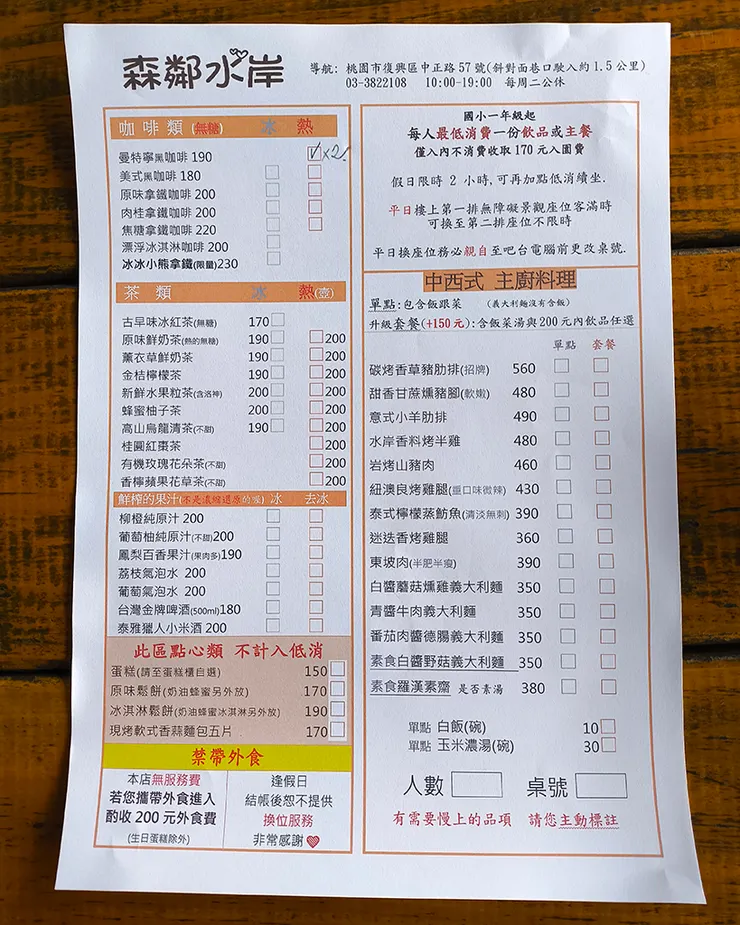 森鄰水岸
導航: 桃園市復興區中正路57號(斜對面巷口駛入約1.5公里)
03-3822108 10:00-19:00 每周二公休
咖啡類 (無糖) 冰 熱
曼特寧黑咖啡 190 √x2
美式黑咖啡 180
原味拿鐵咖啡 200
肉桂拿鐵咖啡 200
焦糖拿鐵咖啡 220
漂浮冰淇淋咖啡 200
冰冰小熊拿鐵(限量)230
茶類 冰 熱(壺)
古早味冰紅茶(無糖) 170
原味鮮奶茶(熱的無糖) 190 200
薰衣草鮮奶茶 190 200
金桔檸檬茶 190 200
新鮮水果粒茶(含洛神) 200 200
蜂蜜柚子茶 200 200
高山烏龍清茶(不甜) 190 200
桂圓紅棗茶 200
有機玫瑰花朵茶(不甜) 200
香檸蘋果花草茶(不甜) 200
鮮榨的果汁(不是濃縮還原的喔) 冰 去冰
柳橙純原汁 200
葡萄柚純原汁(不甜)200
鳳梨百香果汁(果肉多)190
荔枝氣泡水 200
葡萄氣泡水 200
台灣金牌啤酒(500ml)180
泰雅獵人小米酒 200
此區點心類 不計入低消
蛋糕(請至蛋糕櫃自選) 150
原味鬆餅(奶油蜂蜜另外放) 170
冰淇淋鬆餅(奶油蜂蜜冰淇淋另外放) 190
現烤軟式香蒜麵包五片 170
禁帶外食
本店無服務費
若您攜帶外食進入
酌收 200 元外食費
(生日蛋糕除外)
逢假日
結帳後恕不提供
換位服務
非常感謝
國小一年級起
每人最低消費一份飲品或主餐
僅入內不消費收取 170 元入園費
假日限時 2 小時,可再加點低消續坐.
平日樓上第一排無障礙景觀座位客滿時
可換至第二排座位不限時
平日換座位務必親自至吧台電腦前更改桌號.
中西式 主廚料理
單點:包含飯跟菜 (義大利麵沒有含飯)
升級套餐(+150元):含飯菜湯與200元內飲品任選
單點 套餐
碳烤香草豬肋排(招牌) 560
甜香甘蔗燻豬腳(軟嫩) 480
意式小羊肋排 490
水岸香料烤半雞 480
岩烤山豬肉 460
紐澳良烤雞腿(重口味微辣) 430
泰式檸檬蒸魴魚(清淡無刺) 390
迷迭香烤雞腿 360
東坡肉(半肥半瘦) 390
白醬蘑菇燻雞義大利麵 350
青醬牛肉義大利麵 350
番茄肉醬德腸義大利麵 350
素食白醬野菇義大利麵 350
素食羅漢素齋 是否素湯 380
單點 白飯(碗) 10
單點 玉米濃湯(碗) 30
人數 桌號
有需要慢上的品項 請您主動標註